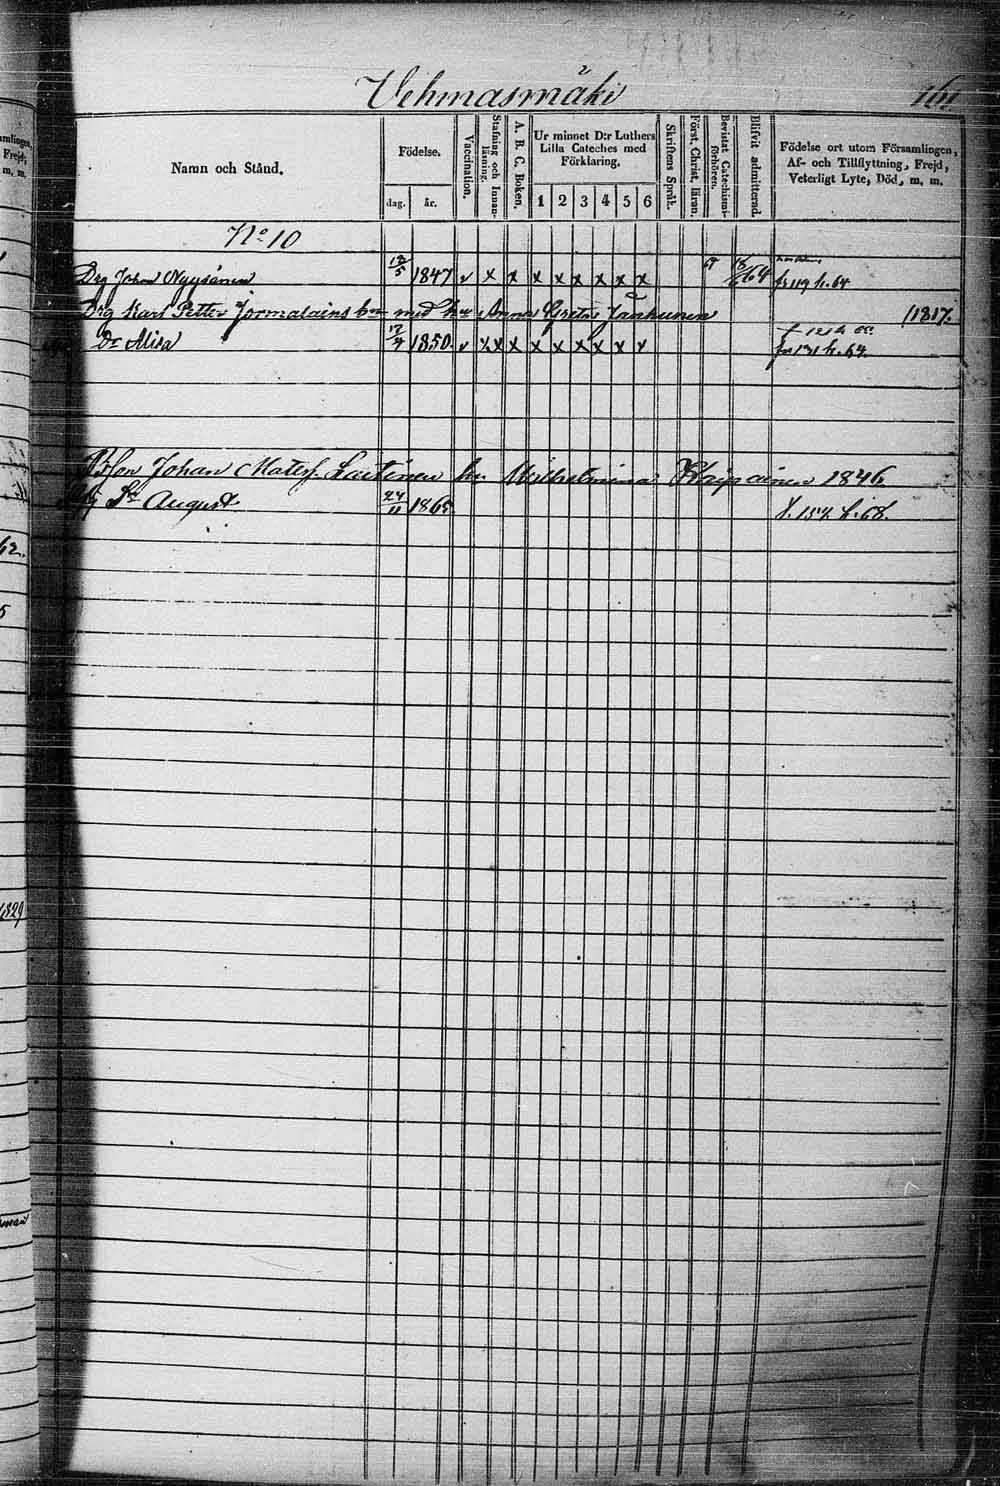 Vehmasmäki
161
Namn och Stånd.
Födelse.
dag.
år.
Vaccination.
Stafning och Innanläsning.
A. B. C. Boken.
Ur minnet D:r Luthers Lilla Cateches med Förklaring.
1 2 3 4 5 6
Skriftens Språk.
Först. Christ. läran.
Bevistat Catechismi-förhören.
Blifvit admitterad.
Födelse ort utom Församlingen, Af- och Tillflyttning, Frejd, Veterligt Lyte, Död, m. m.
No 10
Drg Johan Nyyssönen 12/5 1847 v x x x x x x x x 64 fr 119 h. 64
Drg Karl Petter Jormalains med Anna Greta Janhunen (1817.
Dr Alisa 12/4 1850. v x x x x x x x x x fr 131 h. 64.
Johan Matess. Lautinen hu Wilhelmina 1846
Sn August 24/11 1865 f. 157 h. 68.
62.
5
1829